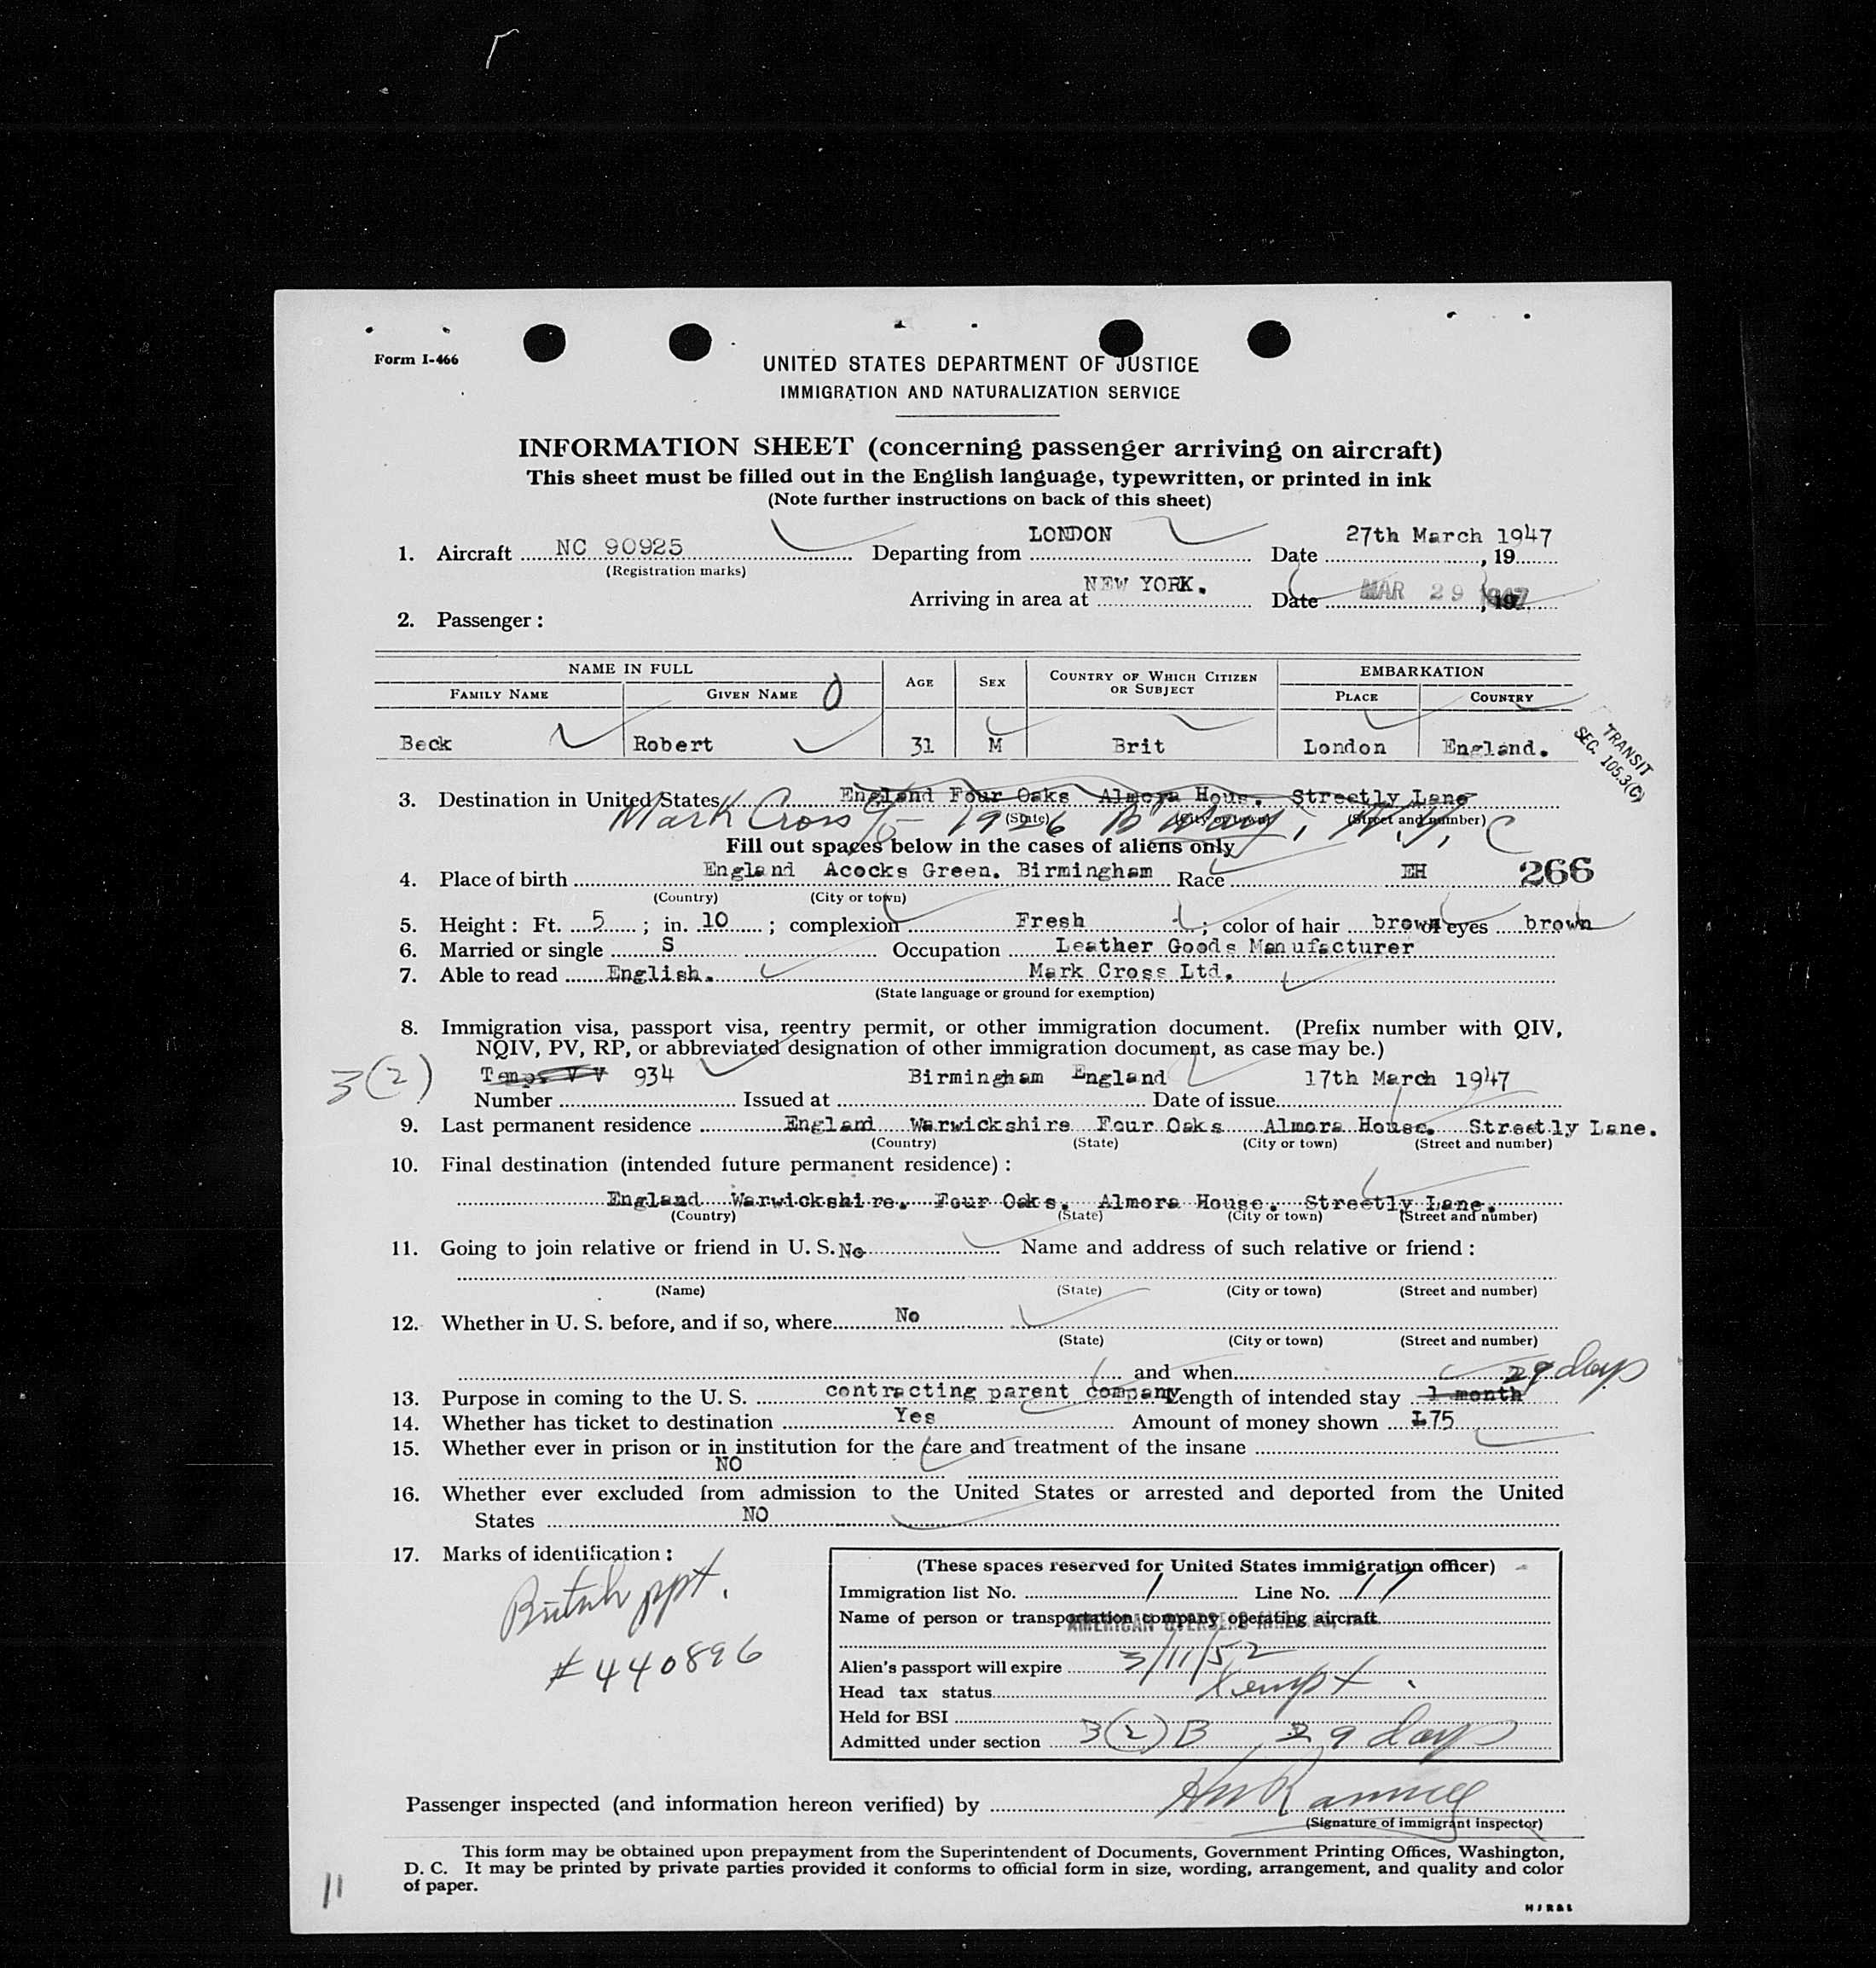 Form I-466
UNITED STATES DEPARTMENT OF JUSTICE
IMMIGRATION AND NATURALIZATION SERVICE
INFORMATION SHEET (concerning passenger arriving on aircraft)
This sheet must be filled out in the English language, typewritten, or printed in ink
(Note further instructions on back of this sheet)
1. Aircraft NC 90925 Departing from LONDON Date 27th March 1947, 19
(Registration marks)
Arriving in area at NEW YORK. Date MAR 29 1947, 19
2. Passenger:
NAME IN FULL AGE SEX COUNTRY OF WHICH CITIZEN OR SUBJECT EMBARKATION
FAMILY NAME GIVEN NAME PLACE COUNTRY
Beck Robert 31 M Brit London England.
TRANSIT
SEC. 105.3(C)
3. Destination in United States England Four Oaks Almora Hous. Streetly Lane
(State) (City or town) (Street and number)
Mark Cross 1926 B'Way, N.Y.C
Fill out spaces below in the cases of aliens only
4. Place of birth England Acocks Green. Birmingham Race EH 266
(Country) (City or town)
5. Height: Ft. 5; in. 10; complexion Fresh; color of hair brown of eyes brown
6. Married or single S Occupation Leather Goods Manufacturer
7. Able to read English. Mark Cross Ltd.
(State language or ground for exemption)
8. Immigration visa, passport visa, reentry permit, or other immigration document. (Prefix number with QIV,
NQIV, PV, RP, or abbreviated designation of other immigration document, as case may be.)
3(2) Temp. V V 934 Birmingham England 17th March 1947
Number Issued at Date of issue
9. Last permanent residence England Warwickshire Four Oaks Almora House. Streetly Lane.
(Country) (State) (City or town) (Street and number)
10. Final destination (intended future permanent residence):
England Warwickshire. Four Oaks. Almora House. Streetly Lane.
(Country) (State) (City or town) (Street and number)
11. Going to join relative or friend in U. S. No Name and address of such relative or friend:
(Name) (State) (City or town) (Street and number)
12. Whether in U. S. before, and if so, where No
(State) (City or town) (Street and number)
and when 29 days
13. Purpose in coming to the U. S. contracting parent company Length of intended stay 1 month
14. Whether has ticket to destination Yes Amount of money shown £75
15. Whether ever in prison or in institution for the care and treatment of the insane
NO
16. Whether ever excluded from admission to the United States or arrested and deported from the United
States NO
17. Marks of identification:
British ppt.
# 440896
(These spaces reserved for United States immigration officer)
Immigration list No. 1 Line No. 17
Name of person or transportation company operating aircraft
AMERICAN OVERSEAS AIRLINES, INC.
Alien's passport will expire 3/11/52
Head tax status Exempt.
Held for BSI
Admitted under section 3(2)B 29 days
Passenger inspected (and information hereon verified) by
(Signature of immigrant inspector)
This form may be obtained upon prepayment from the Superintendent of Documents, Government Printing Offices, Washington,
D. C. It may be printed by private parties provided it conforms to official form in size, wording, arrangement, and quality and color
of paper.
11